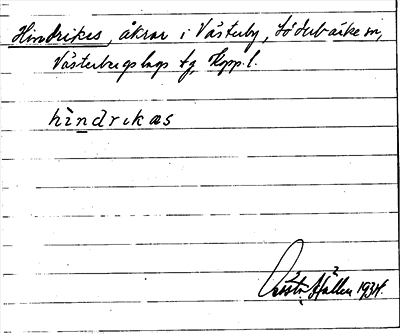 Hindrikas, åkrar i Västerby, Söderbärke sn,
Västerbergslags tg, Kopp. l.
hindrikas
Gösta Hällen 1934.